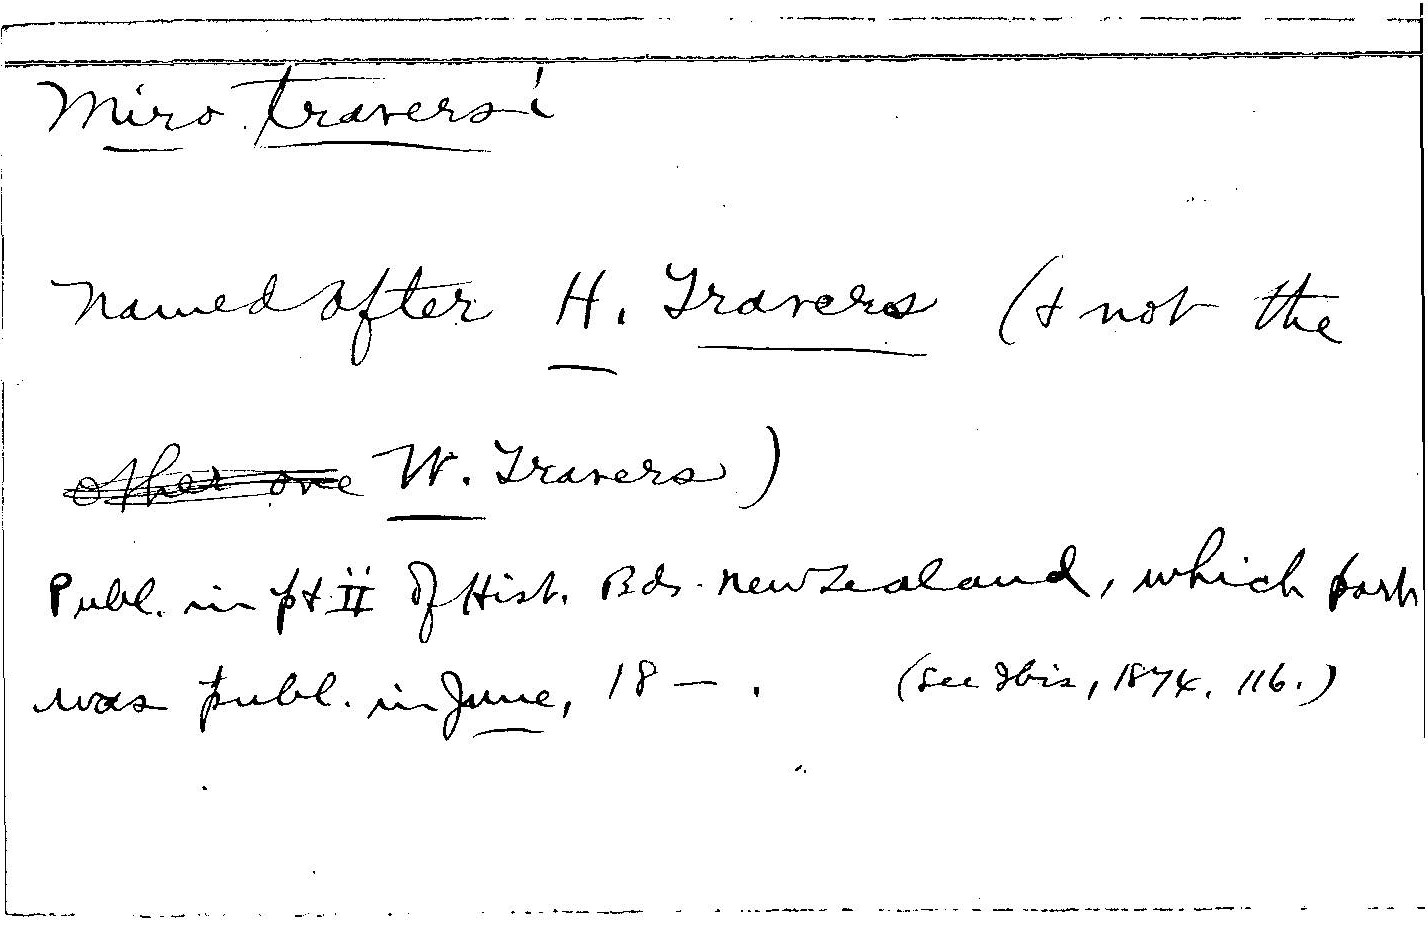 Miro traversi
named after H. Travers (& not the
other one W. Travers)
Publ. in pt II of Hist. Bds. New Zealand, which part
was publ. in June, 18—. (See Ibis, 1874, 116.)